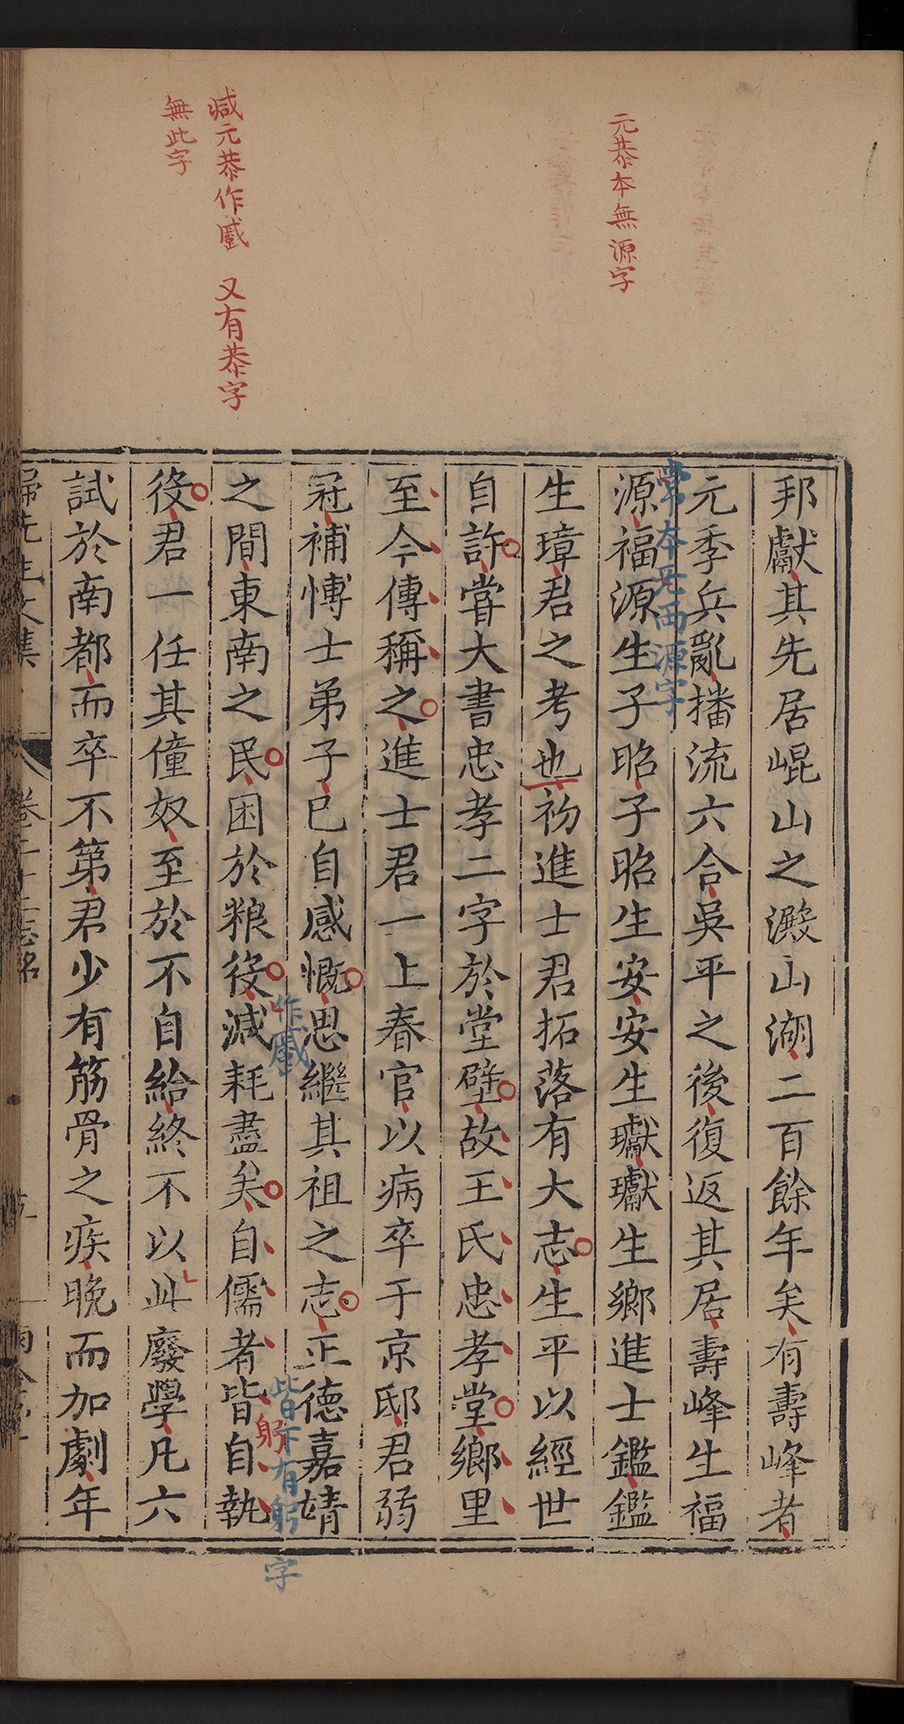 元恭本無源字
減元恭作蹙 又有恭字
無此字
邦獻其先居崐山之澱山湖二百餘年矣有壽峰者
元季兵亂播流六合吳平之後復返其居壽峰生福
常本无兩源字
源福源生子昭子昭生安安生瓛瓛生鄉進士鑑鑑
生璋君之考也初進士君拓落有大志生平以經世
自許嘗大書忠孝二字於堂壁故王氏忠孝堂鄉里
至今傳稱之進士君一上春官以病卒于京邸君弱
冠補博士弟子已自感慨思繼其祖之志正德嘉靖
作蹙
皆下有躬字
之間東南之民困於粮役減耗盡矣自儒者皆自執
躬
役君一任其僮奴至於不自給終不以此廢學凡六
試於南都而卒不第君少有筋骨之疾晚而加劇年
歸先生文集 卷二十 志銘